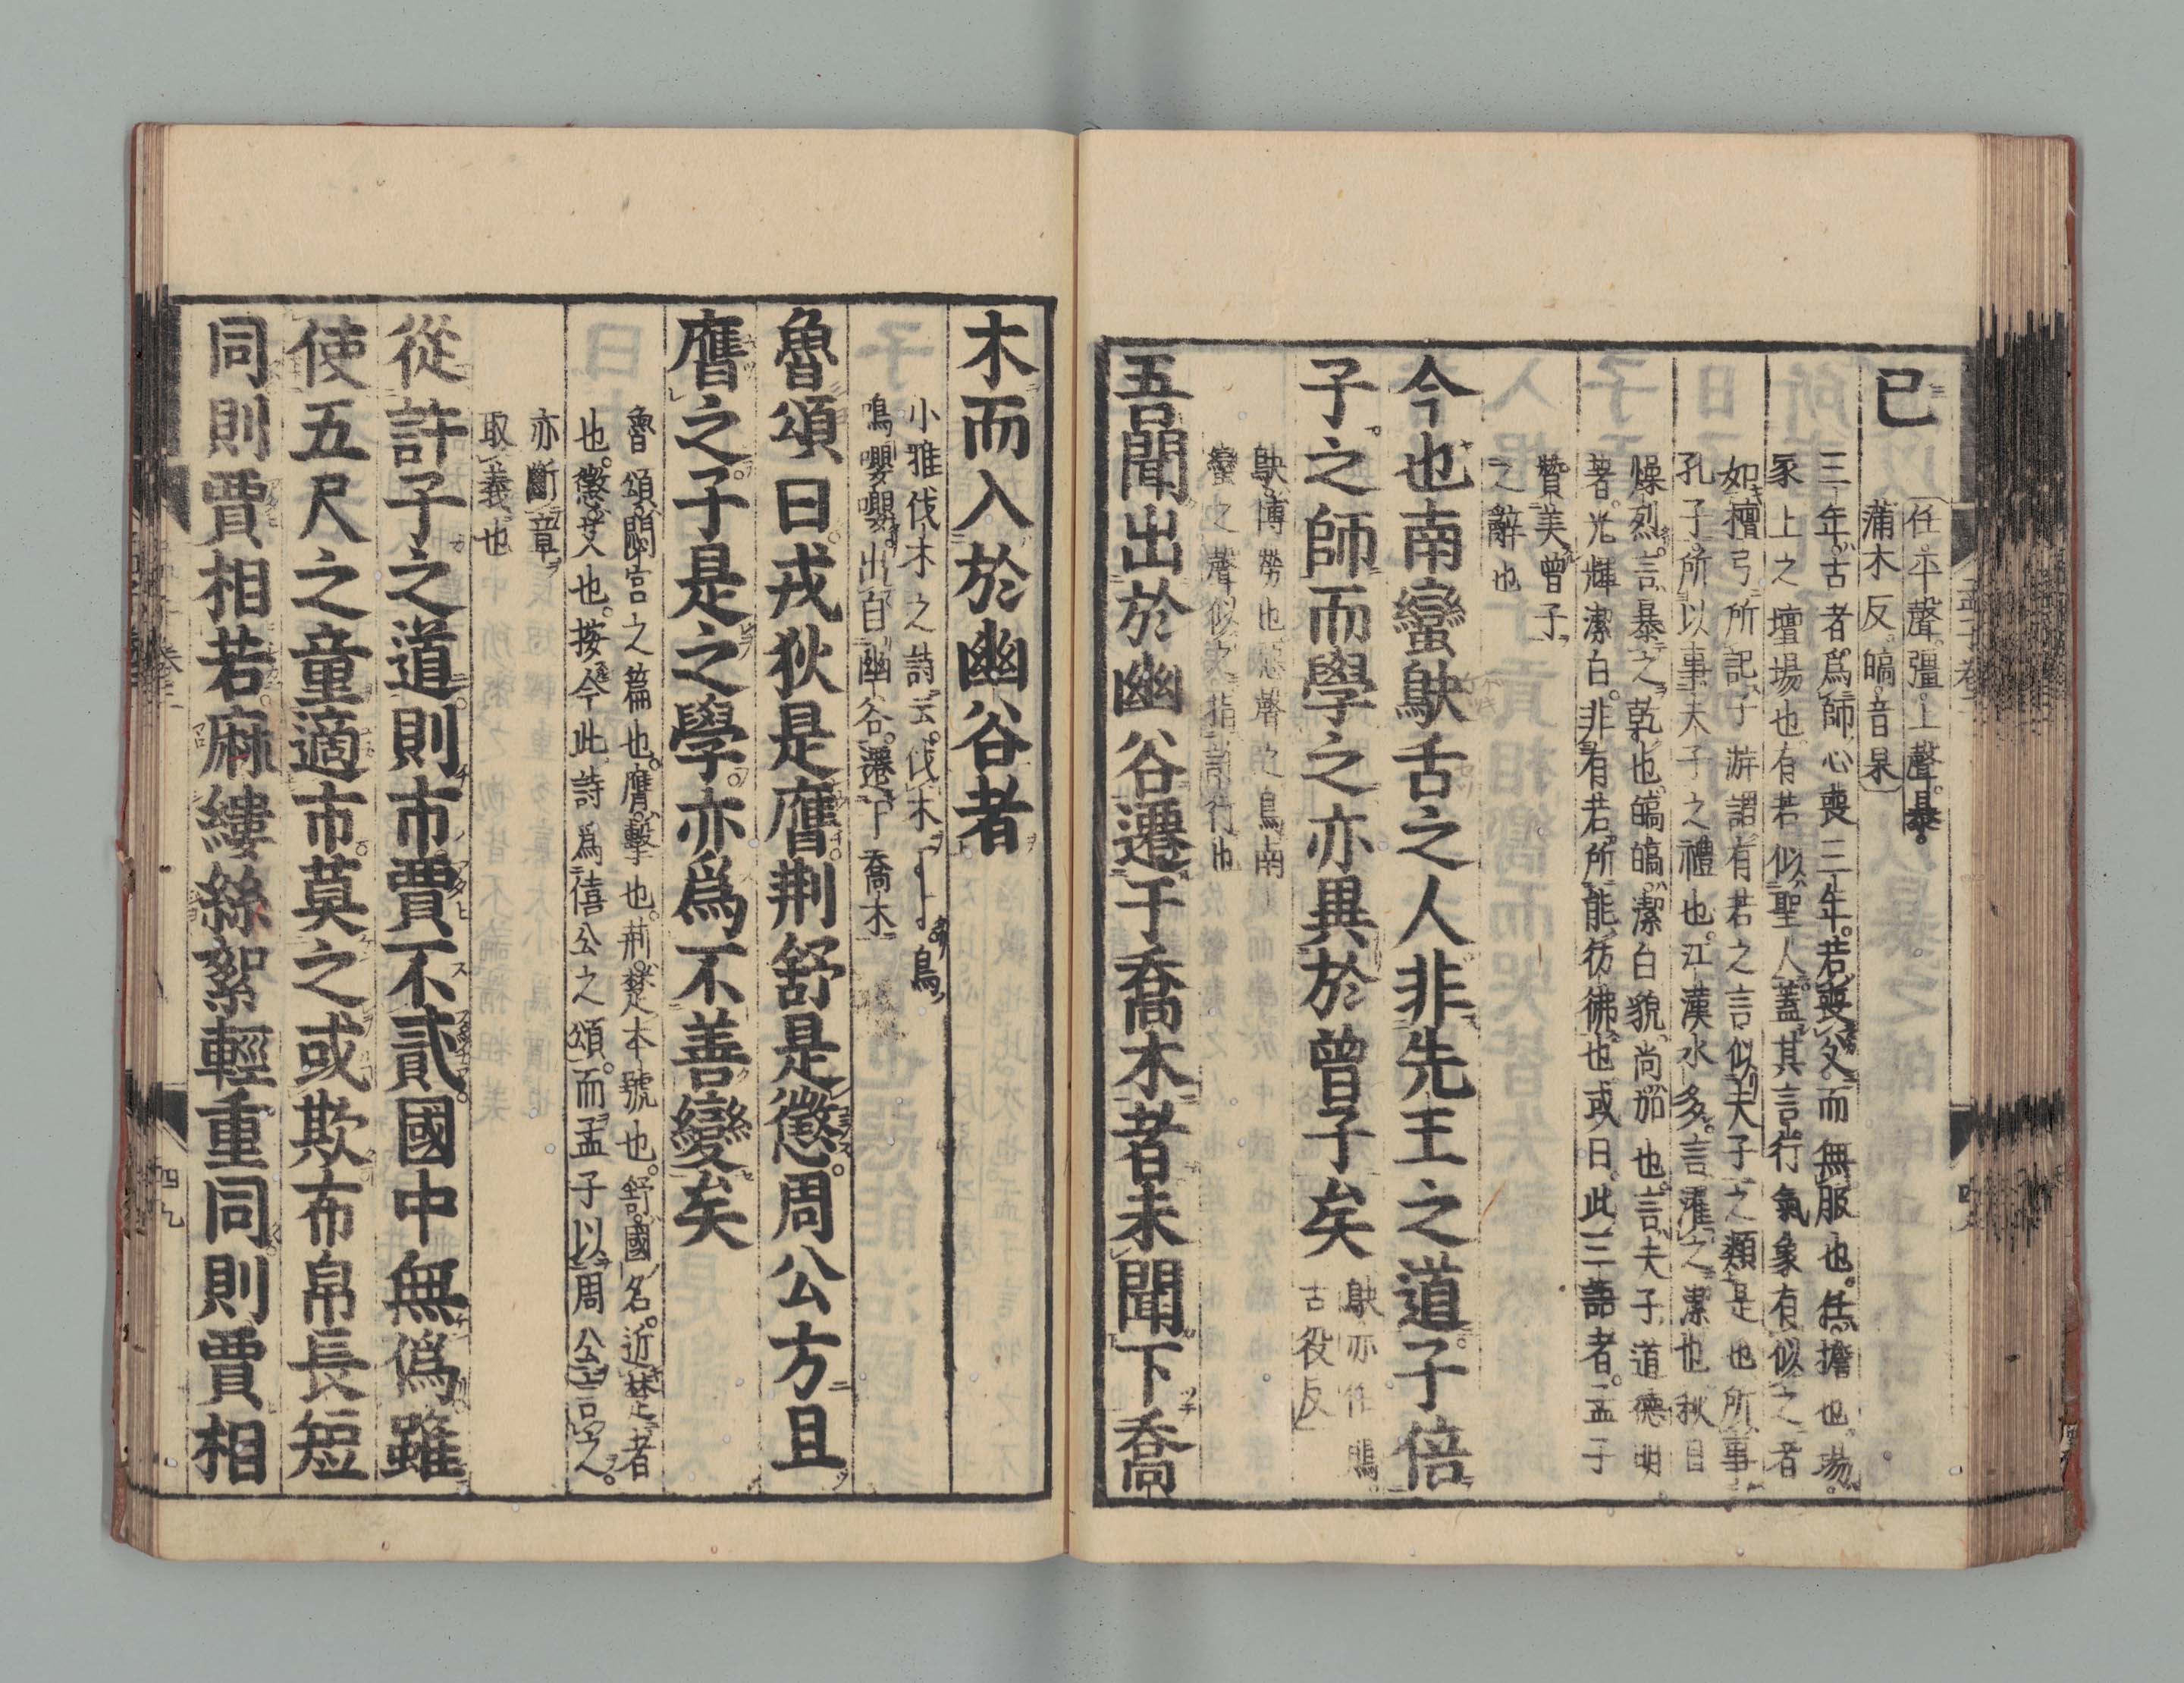 已
任平聲彊上聲暴
蒲木反皜音杲
三年古者爲師心喪三年若喪父而無服也任擔也場
冢上之壇場也有若似聖人蓋其言行氣象有似之者
如檀弓所記子游謂有若之言似夫子之類是也所事
孔子所以事夫子之禮也江漢水多言濯之潔也秋日
燥烈言暴之乾也皜皜潔白貌尚加也言夫子道德明
著光輝潔白非有若所能彷彿也或曰此三語者孟子
贊美曾子
之辭也
今也南蠻鴃舌之人非先王之道子倍
子之師而學之亦異於曾子矣
鴃亦作鵙
古役反
鴃博勞也惡聲之鳥南
蠻之聲似之指許行也
吾聞出於幽谷遷于喬木者未聞下喬
木而入於幽谷者
小雅伐木之詩云伐木丁丁鳥
鳴嚶嚶出自幽谷遷于喬木
魯頌曰戎狄是膺荆舒是懲周公方且
膺之子是之學亦爲不善變矣
魯頌閟宮之篇也膺擊也荆楚本號也舒國名近楚者
也懲艾也按今此詩爲僖公之頌而孟子以周公言之
亦斷章
取義也
從許子之道則市賈不貳國中無僞雖
使五尺之童適市莫之或欺布帛長短
同則賈相若麻縷絲絮輕重同則賈相
孟子卷三
四九